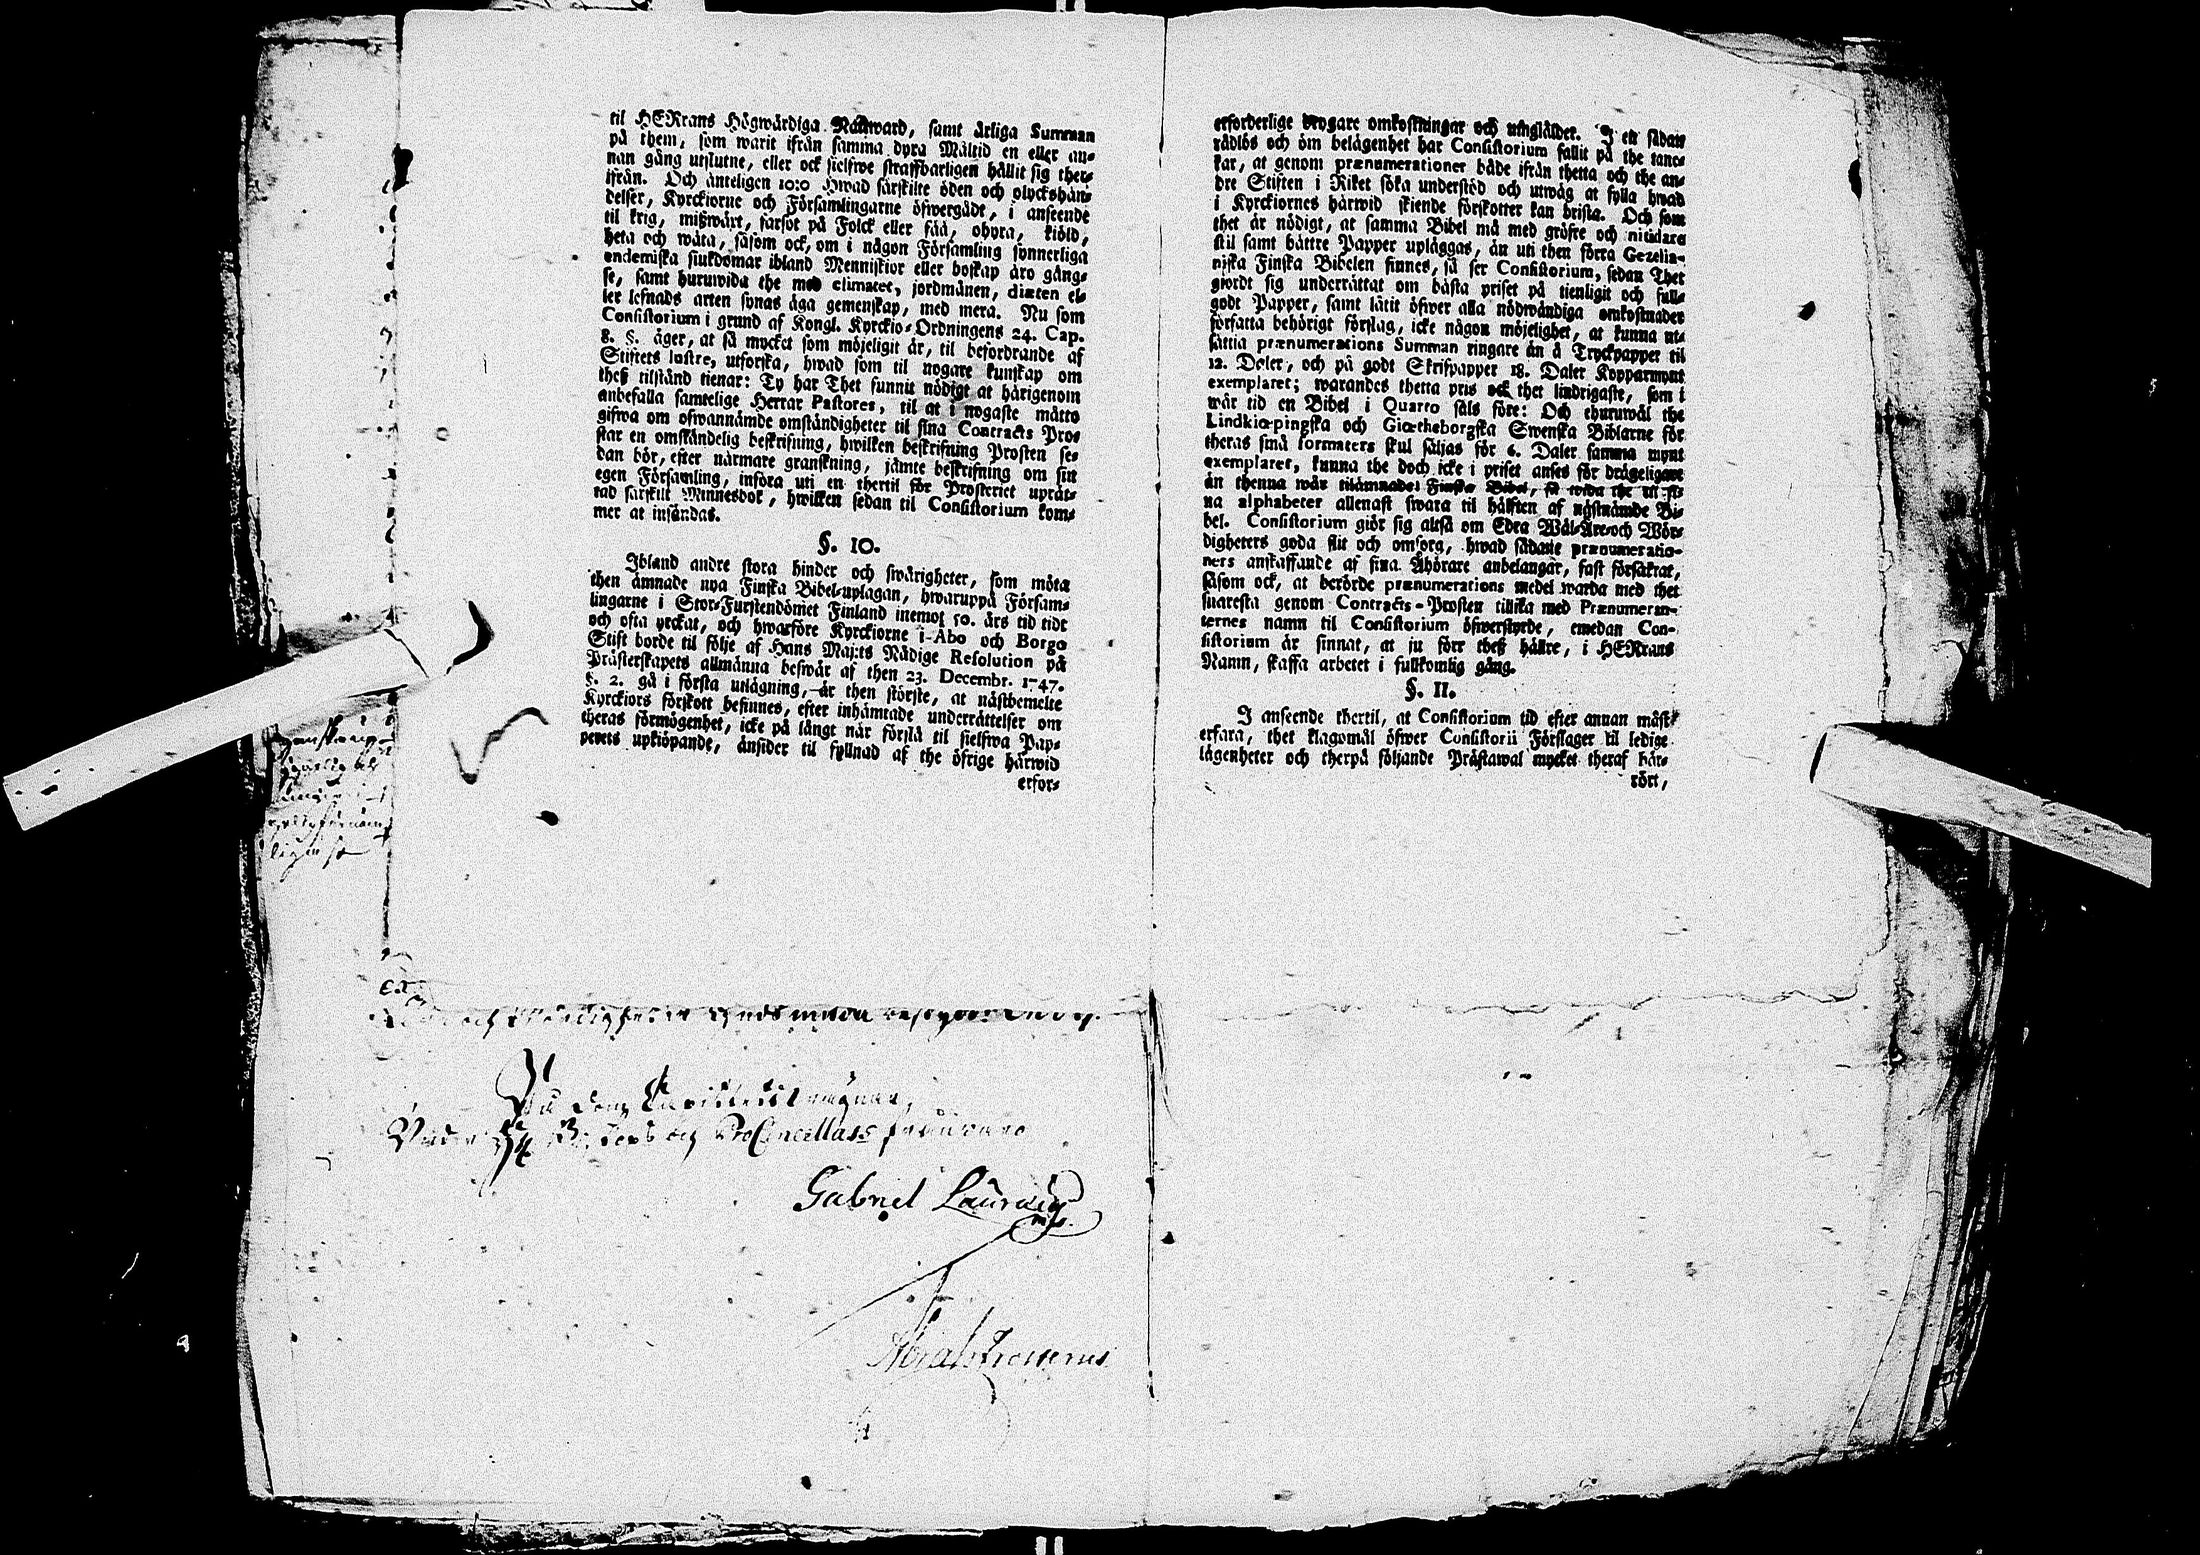 til HERrans Högwärdiga Nattward, samt årliga Summan
på them, som warit ifrån samma dyra Måltid en eller an-
nan gång utslutne, eller ock sielfwe straffbarligen hållit sig ther-
ifrån. Och änteligen 10:o Hwad särskilte öden och olyckshän-
delser, Kyrckiorne och Församlingarne öfwergådt, i anseende
til krig, mißwäxt, farsot på Folck eller fää, ohyra, kiöld,
heta och wäta, såsom ock, om i någon Församling synnerliga
endemiska siukdomar ibland Menniskior eller boskap äro gång-
se, samt huruwida the med climatet, jordmånen, diæten el-
ler lefnads arten synas äga gemenskap, med mera. Nu som
Consistorium i grund af Kongl. Kyrckio-Ordningens 24. Cap.
8. §. äger, at så mycket som möjeligit är, til befordrande af
Stiftets lustre, utforska, hwad som til nogare kunskap om
theß tilstånd tienar: Ty har Thet funnit nödigt at härigenom
anbefalla samtelige Herrar Pastores, til at i nogaste måtto
gifwa om ofwannämde omständigheter til sina Contracts Pro-
star en omständelig beskrifning, hwilken beskrifning Prosten se-
dan bör, efter närmare granskning, jämte beskrifning om sin
egen Församling, införa uti en thertil för Prosteriet uprät-
tad särskilt Minnesbok, hwilken sedan til Consistorium kom-
mer at insändas.
§. 10.
Ibland andre stora hinder och swårigheter, som möta
then ämnade nya Finska Bibel-uplagan, hwaruppå Försam-
lingarne i Stor-Furstendömet Finland inemot 50. års tid tidt
och ofta yrckat, och hwarföre Kyrckiorne i Åbo och Borgo
Stift borde til följe af Hans Maj:ts Nådige Resolution på
Prästerskapets allmänna beswär af then 23. Decembr. 1747.
§. 2. gå i första utlägning, är then störste, at nästbemelte
Kyrckiors förskott befinnes, efter inhämtade underrättelser om
theras förmögenhet, icke på långt när förslå til sielfwa Pap-
perets upkiöpande, änsider til fyllnad af the öfrige härwid
erfor-
Gabriel Lauraeus
erforderlige drygare omkostningar och uthgifter. I en sådan
rådlös och öm belägenhet har Consistorium fallit på the tanc-
kar, at genom prænumerationer både ifrån thetta och the an-
dre Stiften i Riket söka understöd och utwäg at fylla hwad
i Kyrckiornes härwid skiende förskotter kan brista. Och som
thet är nödigt, at samma Bibel må med gröfre och nitidare
stil samt bättre Papper upläggas, än uti then förra Gezelia-
niska Finska Bibelen finnes, så ser Consistorium, sedan Thet
giordt sig underrättat om bästa priset på tienligit och full-
godt Papper, samt låtit öfwer alla nödwändiga omkostnader
författa behörigt förslag, icke någon möjelighet, at kunna ut-
sättia prænumerations Summan ringare än å Tryckpapper til
12. Daler, och på godt Skrifpapper 18. Daler Kopparmynt
exemplaret; warandes thetta pris ock thet lindrigaste, som i
wår tid en Bibel i Quarto säls före: Och ehuruwäl the
Lindkiœpingska och Giœtheborgska Swenska Biblarne för
theras små formaters skul säljas för 6. Daler samma mynt
exemplaret, kunna the doch icke i priset anses för drägeligare
än thenna wår tilämnade Finska Bibel, så wida the til si-
na alphabeter allenast swara til hälften af nästnämde Bi-
bel. Consistorium giör sig altså om Edra Wäl-Äre-och Wör-
digheters goda flit och omsorg, hwad sådane prænumeratio-
ners anskaffande af sina Åhörare anbelangar, fast försäkrat,
såsom ock, at berörde prænumerations medel warda med thet
snaresta genom Contracts-Prosten tillika med Prænumeran-
ternes namn til Consistorium öfwerstyrde, emedan Con-
sistorium är sinnat, at ju förr theß hällre, i HERrans
Namn, skaffa arbetet i fullkomlig gång.
§. 11.
I anseende thertil, at Consistorium tid efter annan måst
erfara, thet klagomål öfwer Consistorii Förslager til ledige
lägenheter och therpå följande Prästawal mycket theraf här-
rört,